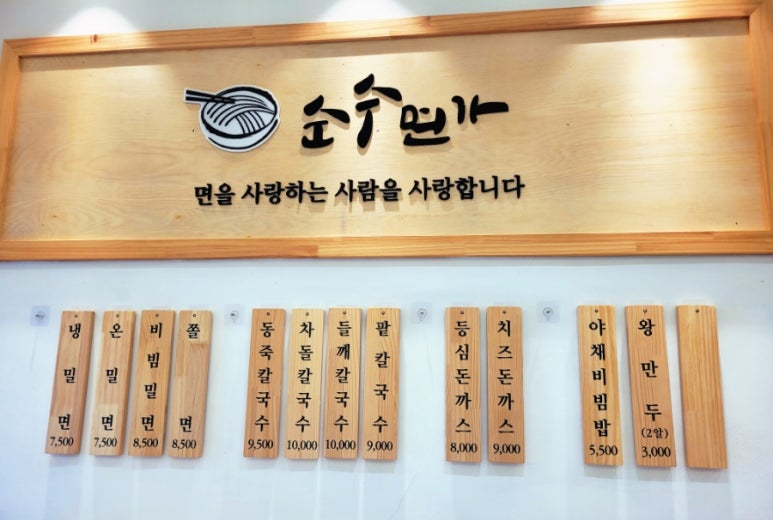 소수면가
면을 사랑하는 사람을 사랑합니다
냉밀면
7,500
온밀면
7,500
비빔밀면
8,500
쫄면
8,500
동죽칼국수
9,500
차돌칼국수
10,000
들깨칼국수
10,000
팥칼국수
9,000
등심돈까스
8,000
치즈돈까스
9,000
야채비빔밥
5,500
왕만두
(2알)
3,000